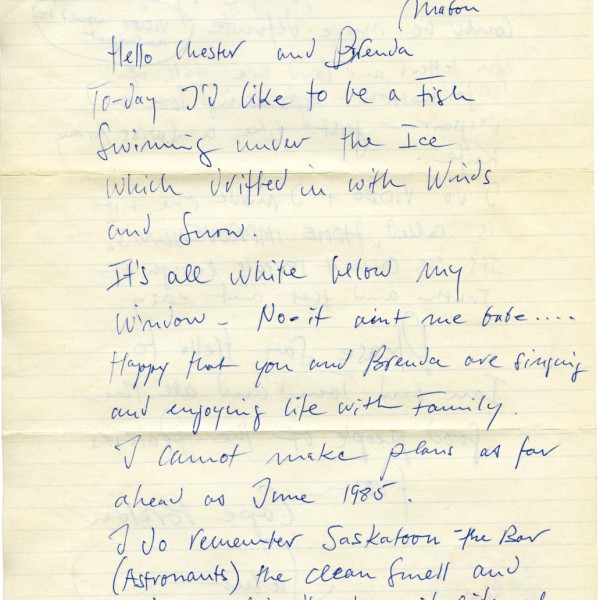 Mabou
Hello Chester and Brenda
To-day I'd like to be a Fish
Swimming under the Ice
which drifted in with Winds
and Snow.
It's all white below my
window - No-it aint me babe....
Happy that you and Brenda are singing
and enjoying life with Family.
I cannot make plans as far
ahead as June 1985.
I do remember Saskatoon-the Bar
(Astronauts) the clean smell and